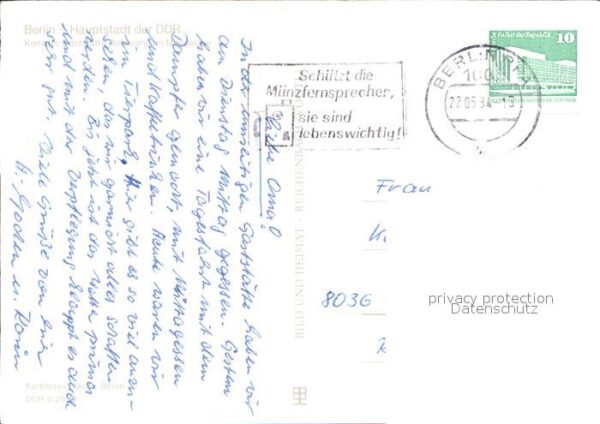 Berlin - Hauptstadt der DDR
Liebe Oma!
In der umseitigen Gaststätte haben wir
am Dienstag Mittag gegessen. Gestern
haben wir eine Tagesfahrt mit dem
Dampfer gemacht, mit Mittagessen
und Kaffeetrinken. Heute waren wir
im Tierpark. Hier gibt es so viel anzu-
sehen, das wir garnicht alles schaffen
werden. Bis jetzt ist das Wetter prima
und mit der Verpflegung klappt es auch
sehr gut. Viele Grüße von
u. Karin
Schützt die
Münzfernsprecher,
sie sind
lebenswichtig!
BERLIN
22.05.84
10
Palast der Republik
Frau
8036
BILD UND HEIMAT REICHENBACH
privacy protection
Datenschutz
Berlin
DDR